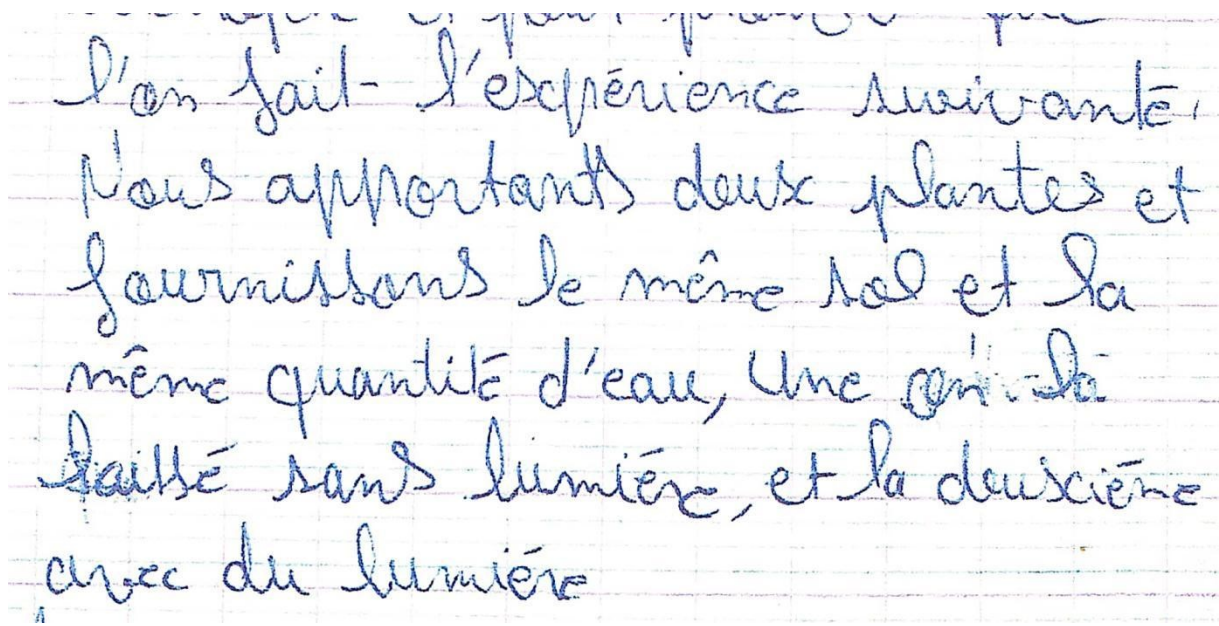 l'on fait l'expérience suivante.
Nous apportants deux plantes et
fournissons le même sol et la
même quantité d'eau, Une on là
laissé sans lumiére, et la deuxiéme
avec du lumiére